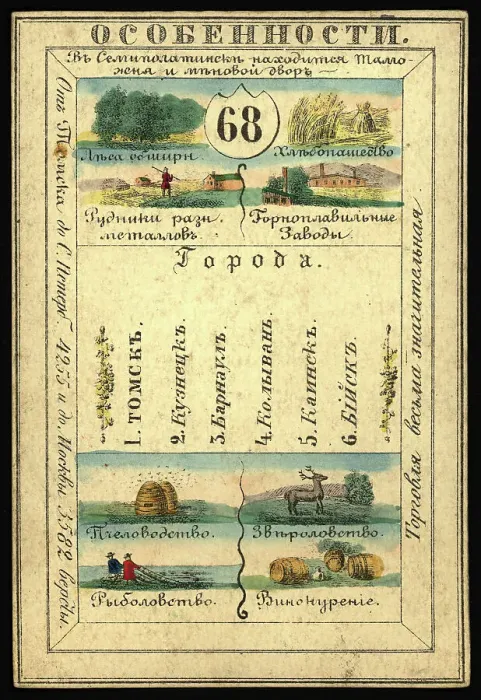 ОСОБЕННОСТИ.
Въ Семиполатинскѣ находится Тамо-
жня и мѣновой дворъ —
68
Лѣса обширн.
Хлѣбопашество
Рудники разн.
металловъ.
Горноплавильные
Заводы.
Города.
1. ТОМСКЪ.
2. Кузнецкъ.
3. Барнаулъ.
4. Колывань.
5. Каинскъ.
6. Бійскъ.
Пчеловодство.
Звѣроловство.
Рыболовство.
Винокуреніе.
Отъ Томска до С. Петерб. 4255 и до Москвы 3582 версты.
Торговля весьма значительная